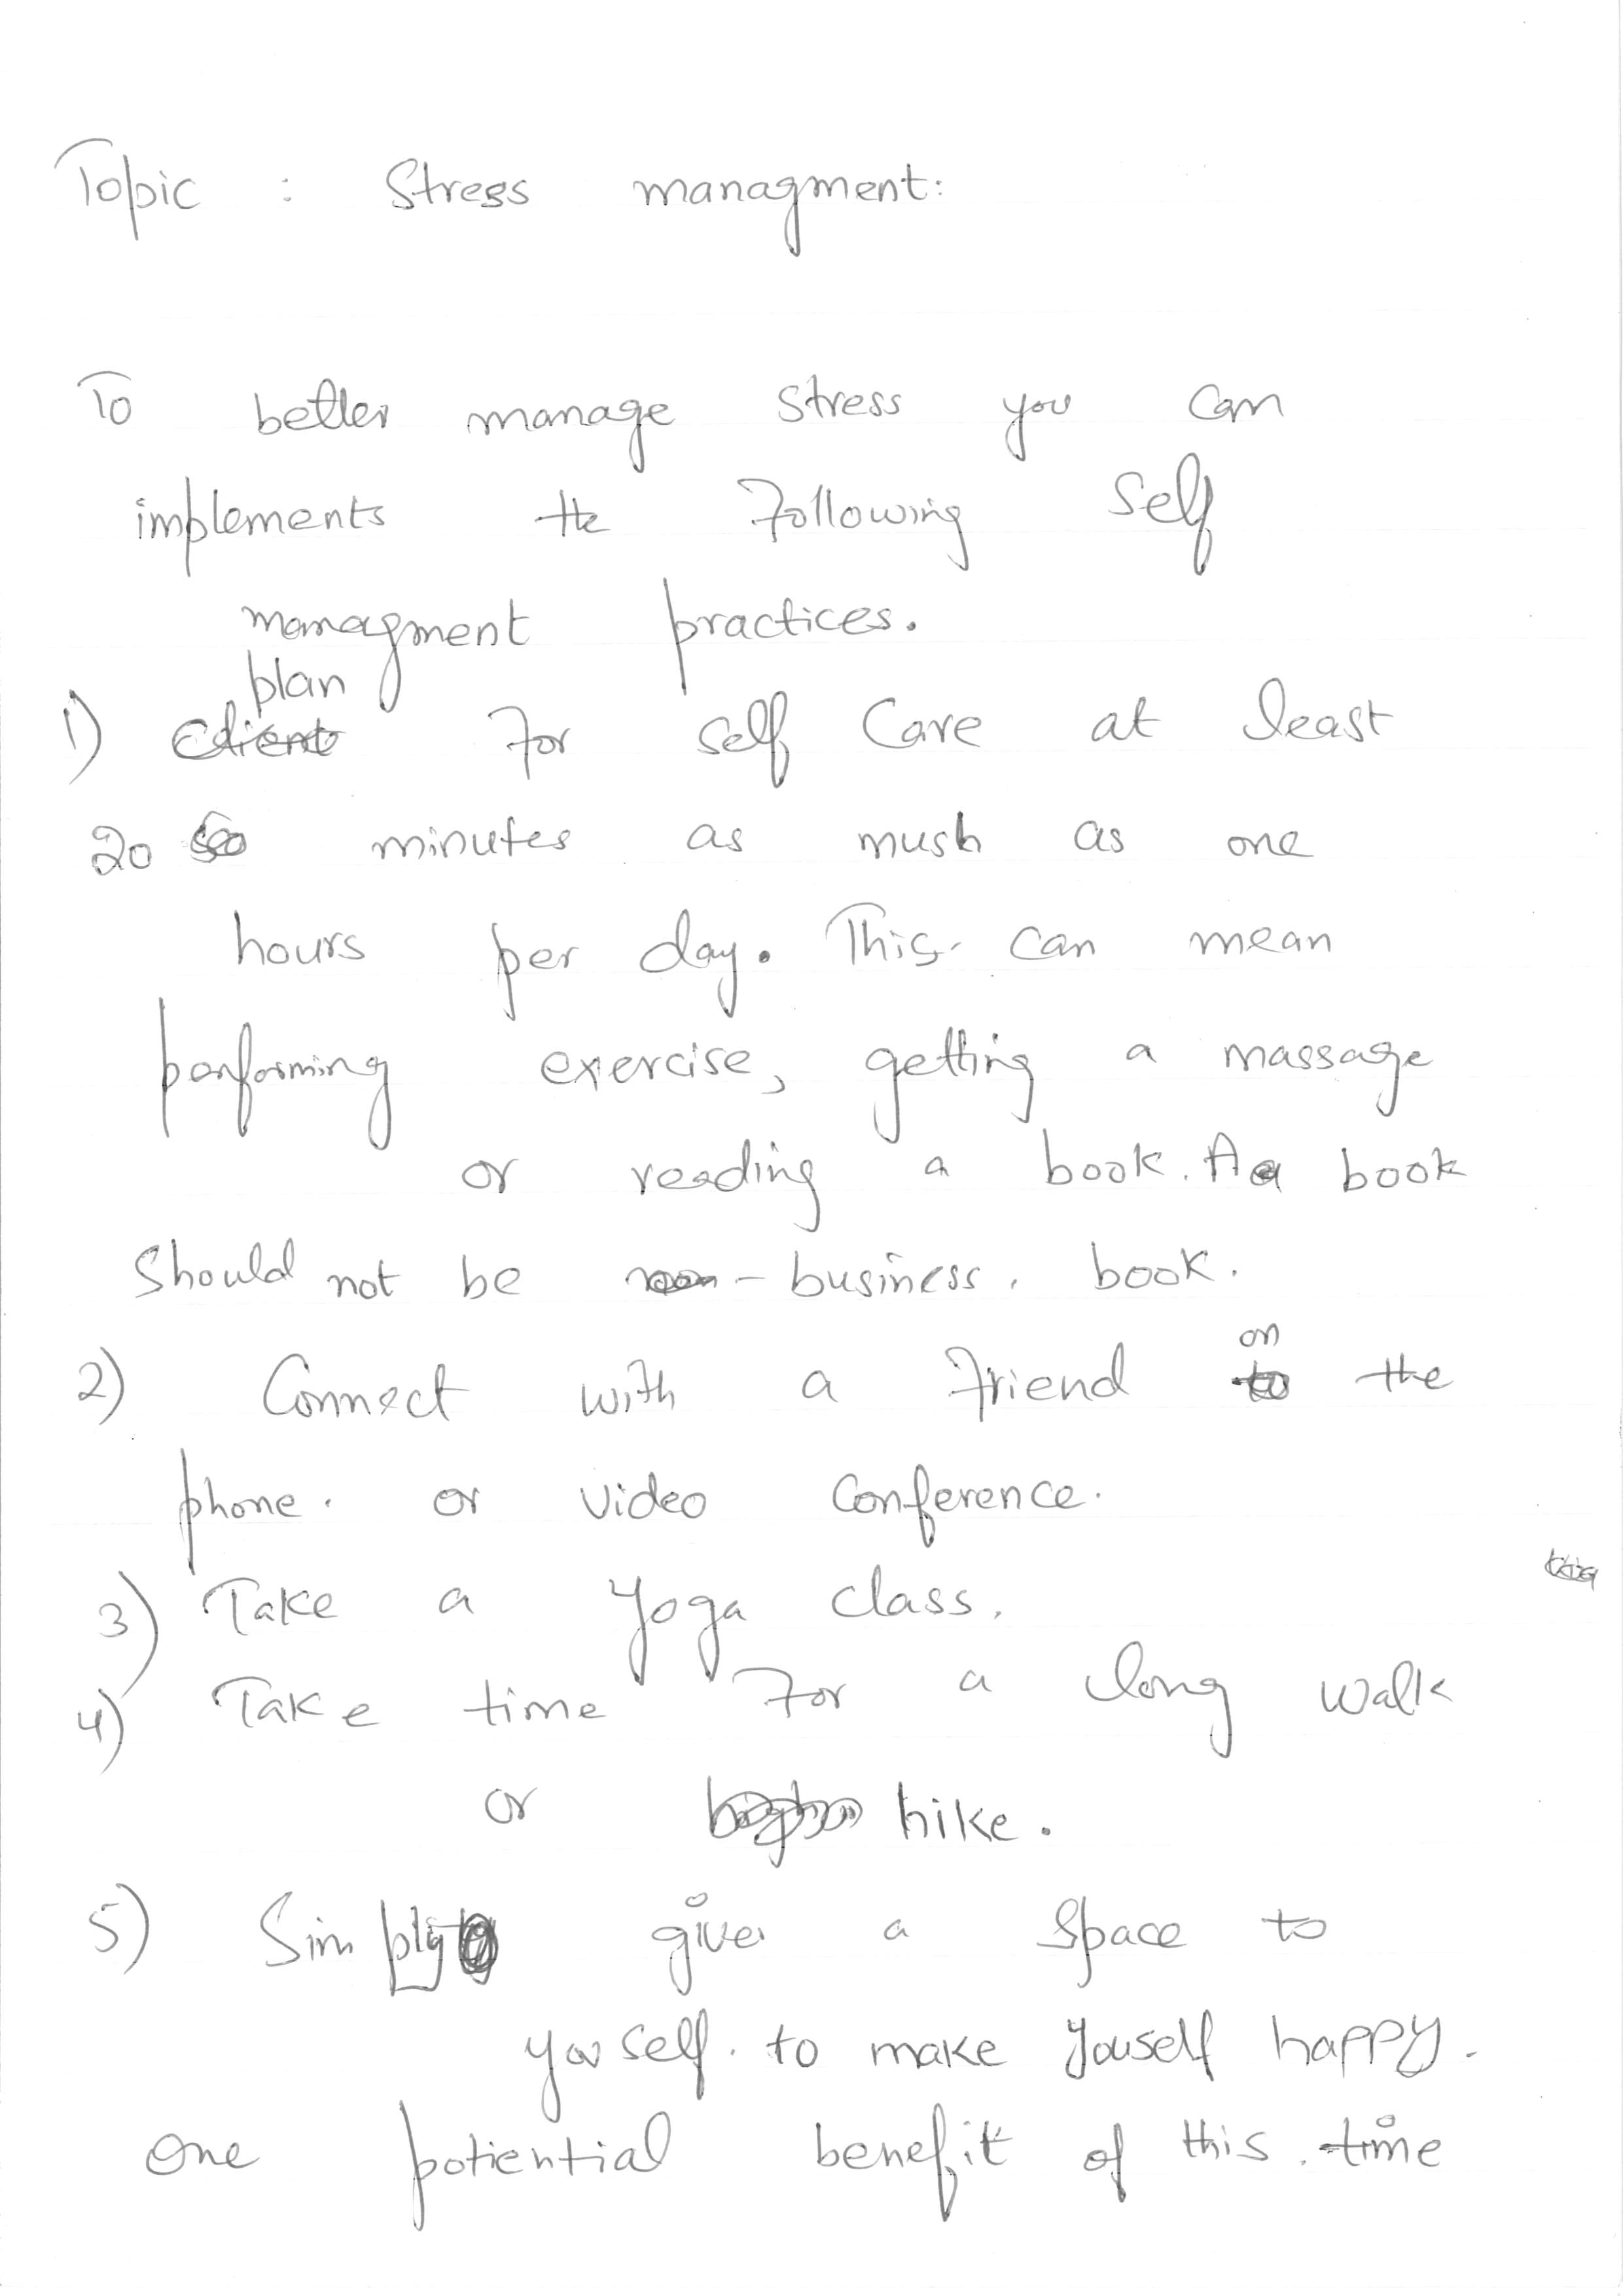 Topic : Stress managment:
To better manage stress you can
implements the following self
managment practices.
plan
1) Client for self care at least
20 minutes as mush as one
hours per day. This can mean
performing exercise, getting a massage
or reading a book. A book
should not be - business. book.
on
2) Connect with a friend to the
phone. or video conference.
3) Take a yoga class.
4) Take time for a long walk
or hike.
5) Simply give a space to
yourself. to make youself happy.
One potiential benefit of this. time